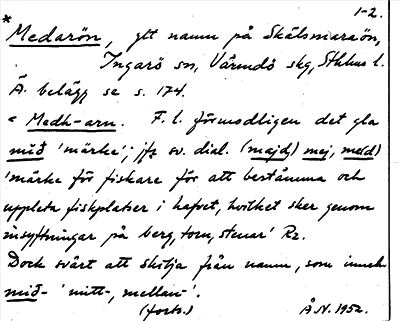 1-2.
* Medarön, gtt namn på Skälsmaraön,
Ingarö sn, Värmdö skg, Sthlms l.
Ä. belägg se s. 174.
< Medh-arn. F. l. förmodligen det gla
mið 'märke'; jfr sv. dial. (majd,) mej, med)
'märke för fiskare för att bestämma och
uppleta fiskplatser i hafvet, hvilket sker genom
insyftningar på berg, torn, stenar' Rz.
Dock svårt att skilja från namn, som inneh.
mið- 'mitt-, mellan-'.
(forts.) Å.N. 1952.